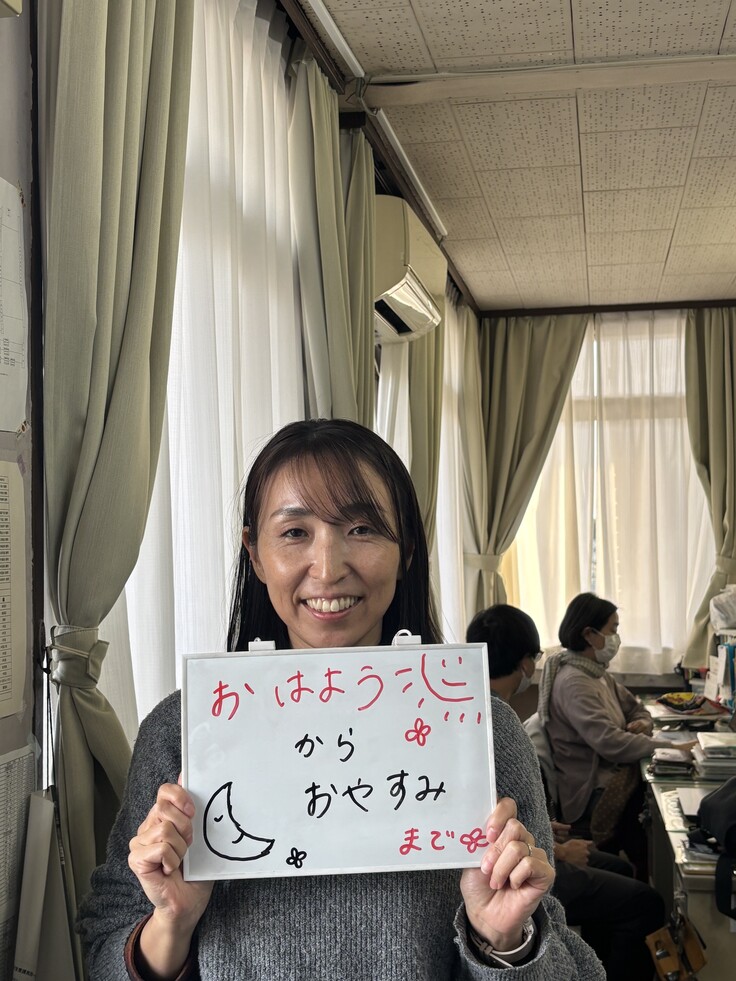 おはよう
から
おやすみ
まで